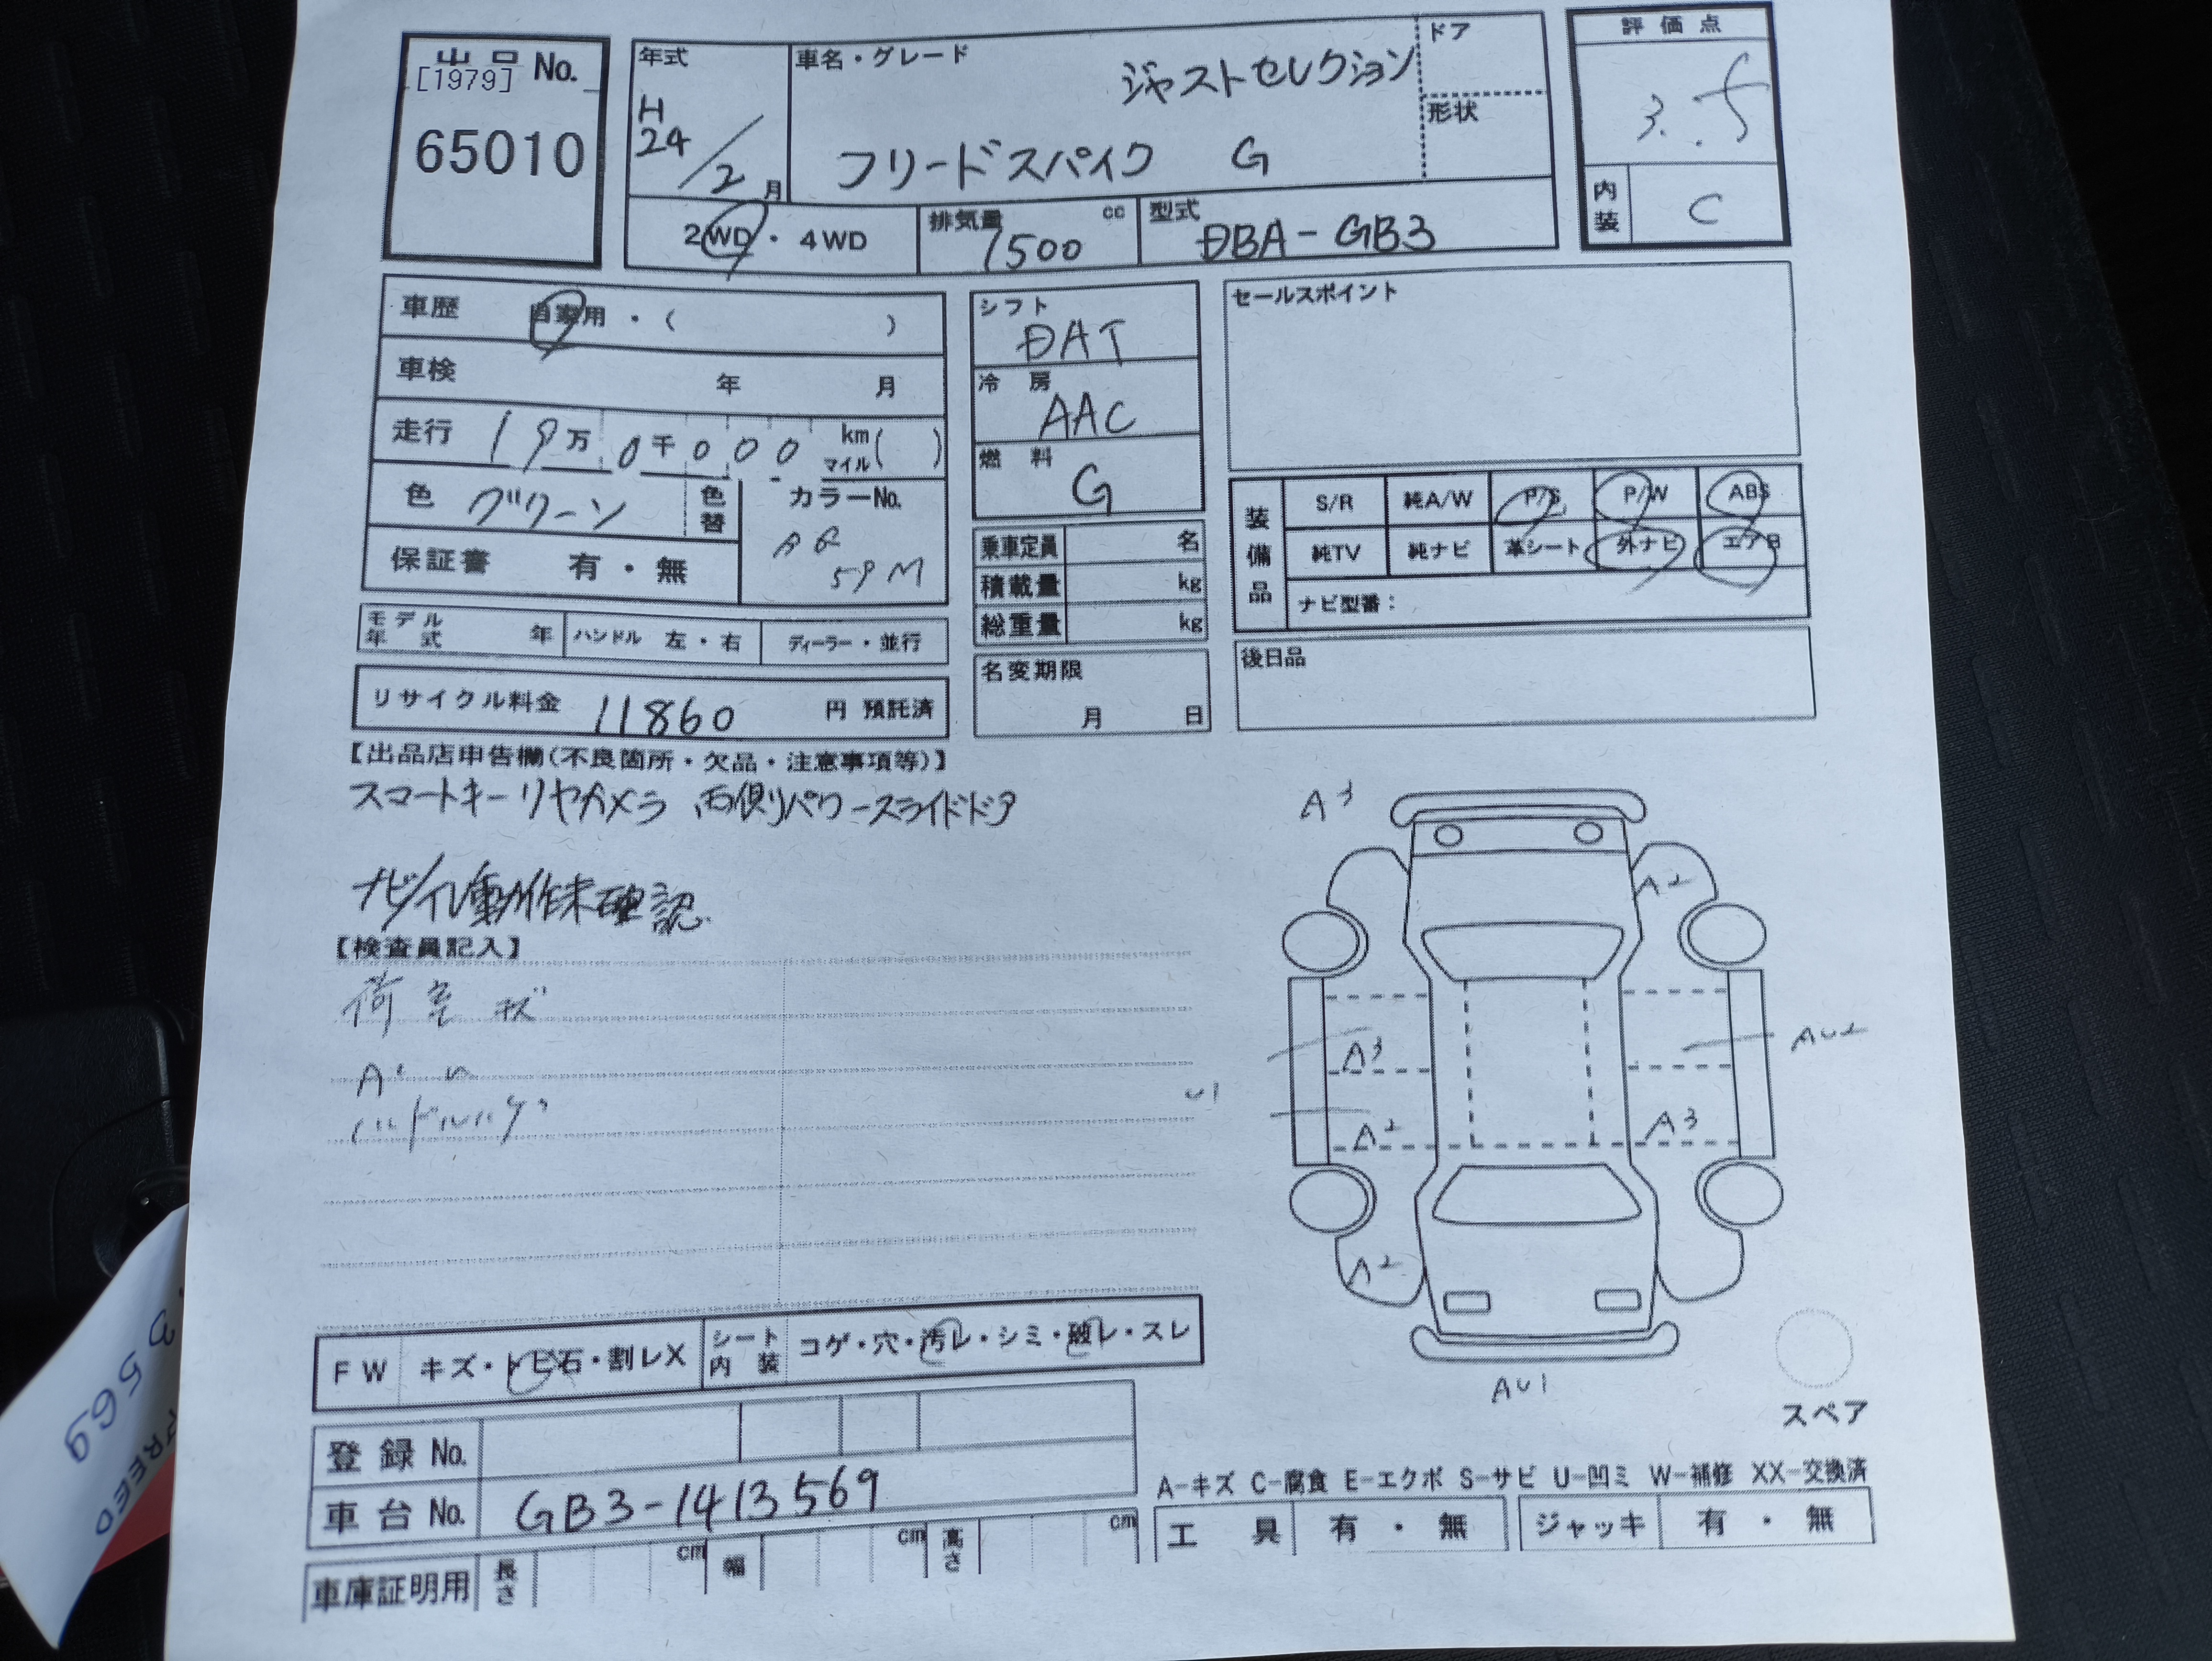 出品 No.
[1979]
65010
年式
H
24/2月
車名・グレード
ジャストセレクション
フリードスパイク G
ドア
形状
評価点
3.5
内装
C
2WD・4WD
排気量
cc
1500
型式
DBA-GB3
車歴
自家用・( )
車検 年 月
走行 19万0千000 km マイル ( )
色 グリーン
色替
カラーNo.
59M
保証書 有・無
シフト
DAT
冷房
AAC
燃料
G
乗車定員 名
積載量 kg
総重量 kg
セールスポイント
装備品
S/R 純A/W P/S P/W ABS
純TV 純ナビ 革シート 外ナビ エアB
ナビ型番:
モデル年式 年
ハンドル 左・右
ディーラー・並行
名変期限
月 日
後日品
リサイクル料金 11860 円 預託済
【出品店申告欄(不良箇所・欠品・注意事項等)】
スマートキー リヤカメラ 両側パワースライドドア
動作未確認
【検査員記入】
荷室
A3
A2
A3
AU2
U1
A2
A3
A2
AU1
スペア
FW キズ・トビ石・割レX
シート内装 コゲ・穴・汚レ・シミ・破レ・スレ
登録No.
車台No. GB3-1413569
A-キズ C-腐食 E-エクボ S-サビ U-凹ミ W-補修 XX-交換済
工具 有・無
ジャッキ 有・無
車庫証明用 長さ cm 幅 cm 高さ cm
3569
FREED